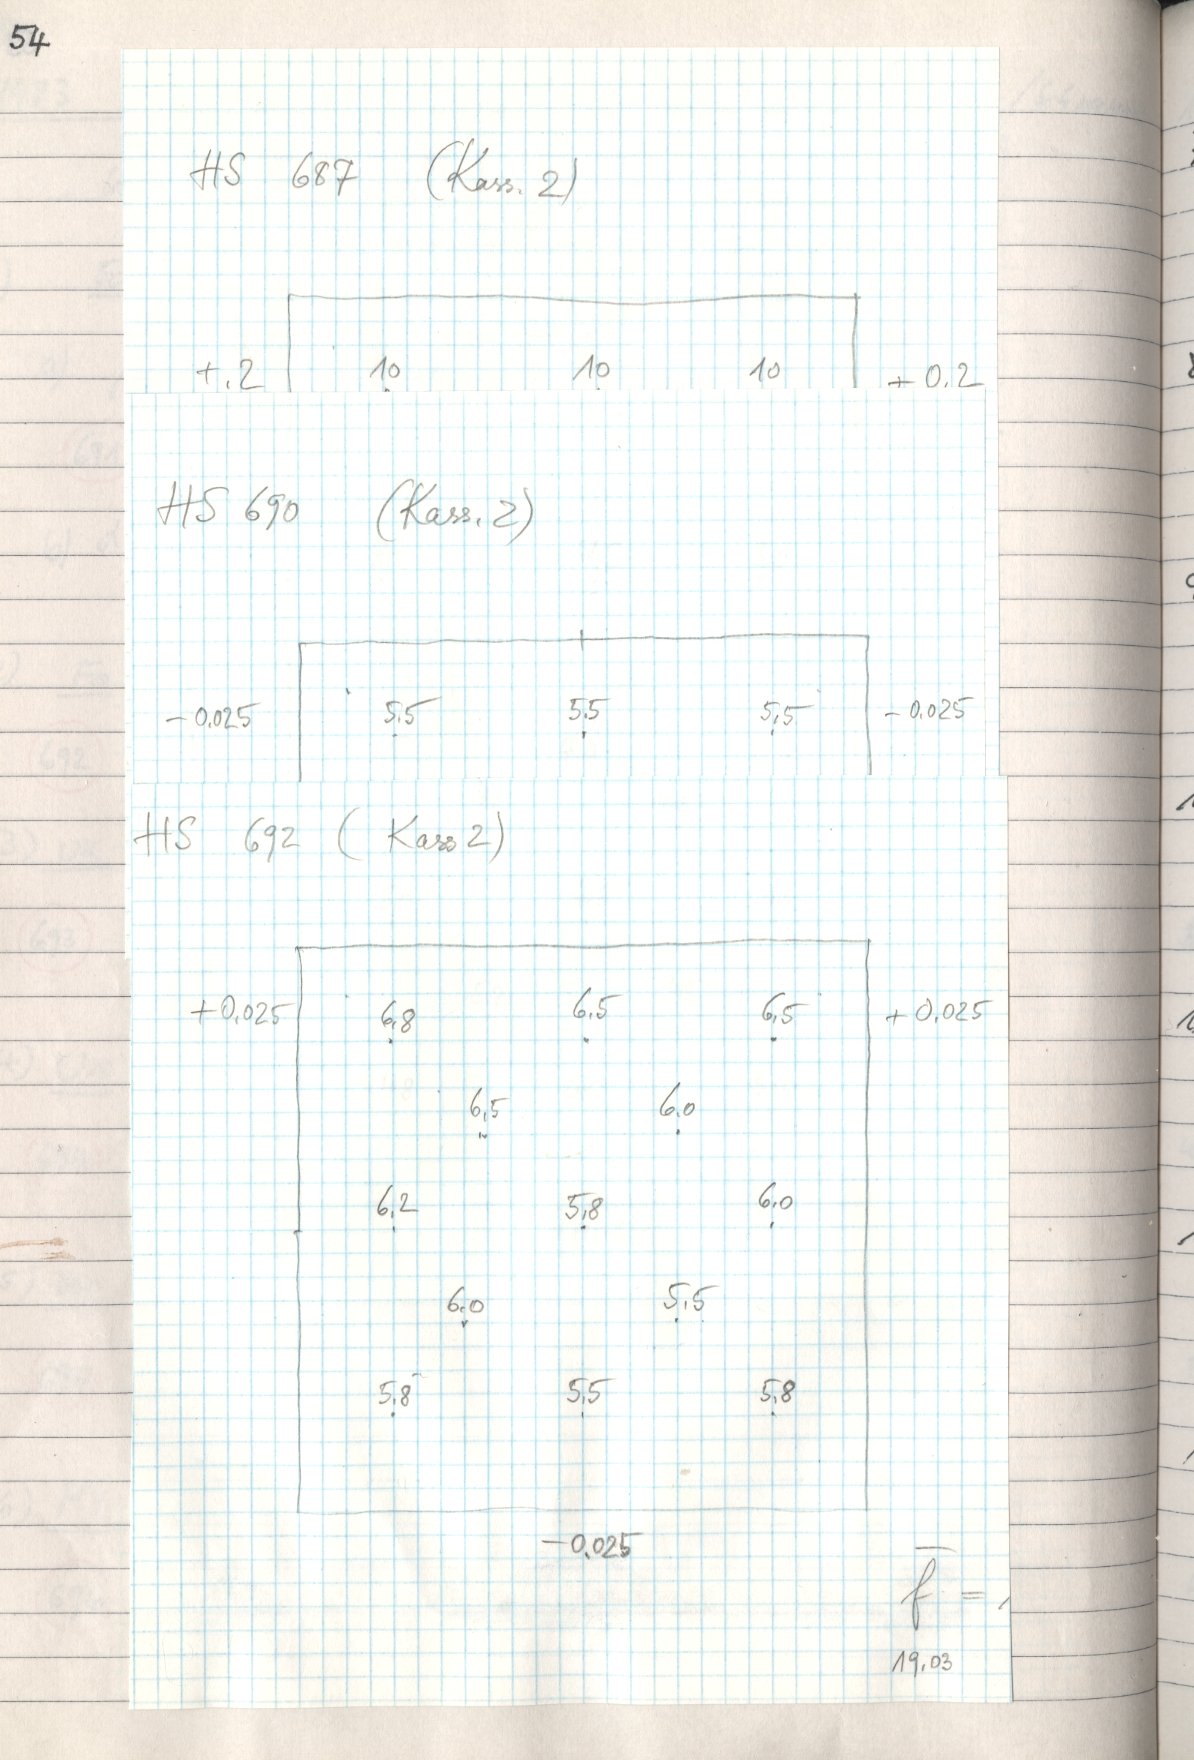 54
HS 687 (Kass. 2)
+.2 10 10 10 +0.2
HS 690 (Kass. 2)
-0.025 5.5 5.5 5,5 -0.025
HS 692 (Kass 2)
+0.025 6,8 6,5 6,5 +0.025
6,5 6.0
6,2 5,8 6,0
6.0 5,5
5,8 5,5 5,8
-0.025
f̅ =
19.03